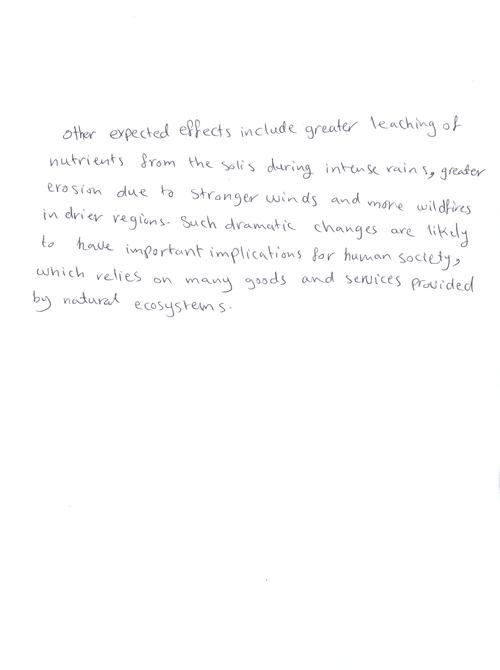 other expected effects include greater leaching of
nutrients from the solis during intense rains, greater
erosion due to stronger winds and more wildfires
in drier regions. Such dramatic changes are likely
to have important implications for human society,
which relies on many goods and services provided
by natural ecosystems.